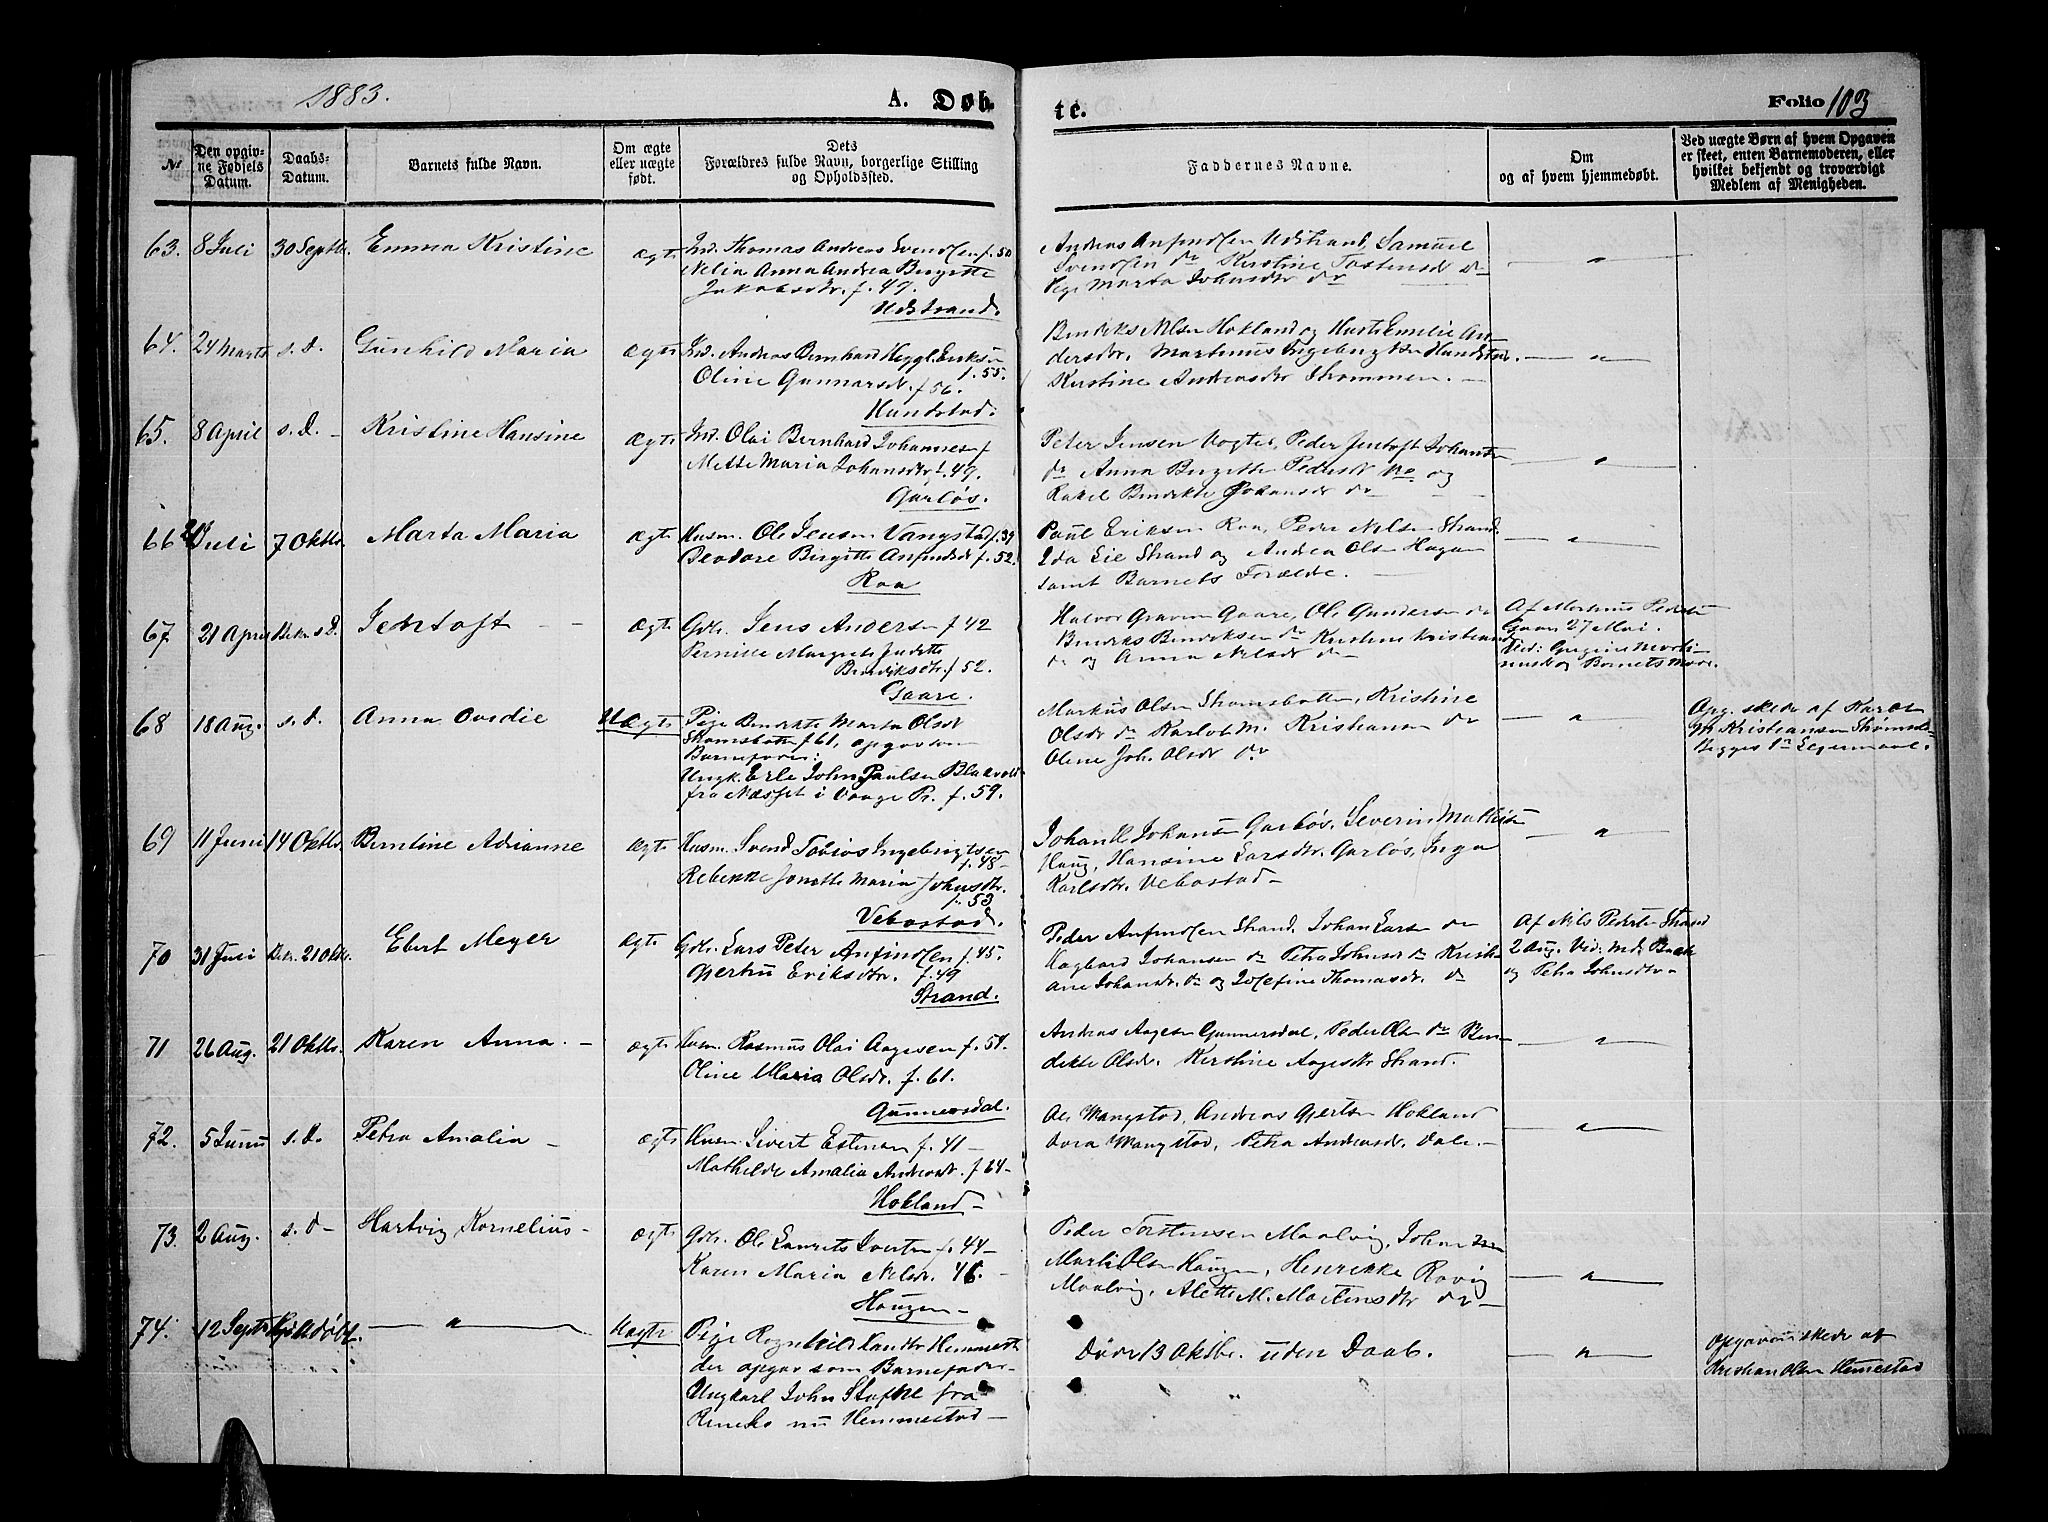 1883.
A. Døb
te.
Folio 103
Nr.
Den opgivne Fødsels Datum.
Daabs-Datum.
Barnets fulde Navn.
Om ægte eller uægte født.
Dets Forældres fulde Navn, borgerlige Stilling og Opholdssted.
Faddernes Navne.
Om og af hvem hjemmedøbt.
Ved uægte Børn af hvem Opgaven er skeet, enten Barnemoderen, eller hvilket bekjendt og troværdigt Medlem af Menigheden.
63. 8 Juli 30 Septbr. Emma Kristine ægte Ind. Thomas Andreas Svendsen f. 50
Anna Andrea Birgitte
Jakobsdtr. f. 47.
Udstrand.
Andreas Anfindsen Udstrand, Samuel
Svendsen do Kirstine Tostensdr do
Pige Marta Johnsdtr do
64. 24 Marts s. D. Gunhild Maria ægte Ind. Andreas Bernhard Heggl. Eriksen
f. 55.
Oline Gunnarsdr. f 56.
Hundstad.
Bendiks Nilsen Hokland og Hustr Emelie An-
dersdtr. Martinus Ingebrigtsen Hundstad.
Kirstine Andreasdtr Strømmen.
65. 8 April s. D. Kristine Hansine ægte Ind. Olai Bernhard Johannesen f
Mette Maria Johansdtr f. 49.
Garløs.
Peter Jensen Vogter, Peder Jentoft Johansen
do Anna Birgitte Pedersdr do og
Rakel Bendikte Johansdr do
66 21 Juli 7 Oktbr. Marta Maria ægte Husm. Ole Jensen Vangstad f. 39
Birgitte Anfindsdr f. 52.
Roa
Paul Eriksen Roa, Peder Nilsen Strand.
Ida Lie Strand og Andrea Olsen Haga
samt Barnets Forældre.
67. 21 April Bekr. s. D. Jentoft ægte Gdbr. Jens Andersen f 42
Pernille Margrete Judette
Bendiksdtr. f 52.
Gaare.
Halvor Graven Gaare, Ole Gundersen do
Bendiks Bendiksen do Kirstine Kristiansd
do og Anna Nilsdr do
Af Martinus Pedersen
Gaare 27 Mai.
Vid: Gregine Marti-
nusd og Barnets Moder.
68 18 Aug. s. d. Anna Ovidie Uægte Pige Bendikte Marta Olsdr
Strømsbotten f 61, opgav som
Barnefader:
Ungk. Erle John Paulsen Blakvold
fra Næsset i Vaage Pr. f. 59.
Markus Olsen Strømsbotten, Kristine
Olsdr do Karlot M. Kristiansen do
Oline Joh. Olsdr do
Opg. skede af Karlot
M. Kristiansen Strømsb.
Begges 1ste Leiermaal.
69 11 Juni 14 Oktbr. Berntine Adrianne ægte Husm. Svend Tobias Ingebrigtsen
f. 48
Rebekke Jonette Maria Johnsdtr.
f. 53
Vebostad.
Johan H. Johansen Garløs, Severin Mathisen
Haug, Hansine Larsdtr. Garløs, Inga
Karlsdtr. Vebostad
70 31 Juli Bekr. 21 Oktr. Ebert Meyer ægte Gdbr. Lars Peter Anfindsen f. 45.
Gjertru Eriksdtr. f. 49
Strand.
Peder Anfindsen Strand. Johan Larsen do
Hagbard Johansen do Petra Johnsdr do Kristi-
ane Johansdr. do og Josefine Thomasdr. do
Af Nils Pedersen Strand
2 Aug. Vid:
og Petra Johnsdtr
71 26 Aug. 21 Oktbr. Karen Anna. ægte Husm. Rasmus Olai Aagesen f. 54.
Oline Maria Olsdr. f. 61.
Gunnersdal.
Andreas Aagesen Gunnersdal, Peder Olsen do Ben-
dikte Olsdr. Kirstine Aagesdtr Strand.
72. 5 Juni s. D. Petra Amalia ægte Husm. Sivert Estensen f. 41
Mathilde Amalia Andreasdr. f 64
Hokland
Ole Wangstad, Andreas Gjertsen Hokland
Dora Wangstad, Petra Andreasdr. Dale.
73. 2 Aug. s. d Hartvig Kornelius ægte Gdbr. Ole Laurits Ivertsen f. 44
Karen Maria Nilsdr. 46.
Haugen
Peder Torstensen Maalvig, Johan
Marki Olsen Haugen, Henrikke Rovig
Maalvig, Alette M. Martinsdtr do
74. 12 Septr Uægte Pige Hemmestad
der opgav som Barnefader
Ungkarl John Stofke fra
nu Hemmestad
Døde 13 Oktbr. uden Daab.
Opgaven skede af
Kristian Olsen Hemestad